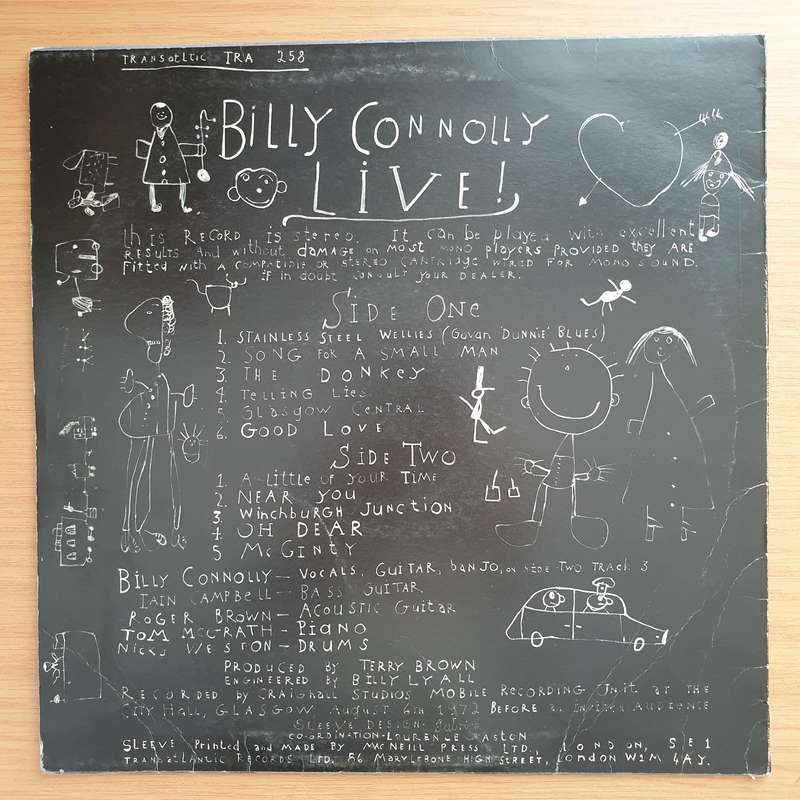 TRANSatLtic TRA 258
BiLLY CONNOLLY
LiVE!
this RECORD is stereo. It can be played with excellent
RESULTS And without DAMAGE on most mono players PROVIDED they ARE
Fitted with A compatible OR stereo CARTRIDGE wired FOR MONO SOUND.
if in doubt consult your DEALER.
SiDE ONe
1. STAINLESS STEEL WELLIES (Govan 'DUNNIE' BLUES)
2. SONG FOR A SMALL MAN
3. THE DONKEY
4. TELLING LIES
5. GLASGOW CENTRAL
6. GOOD LOVE
SiDE TWO
1. A Little OF YOUR TIME
2. NEAR YOU
3. WINCHBURGH JUNCTION
4. OH DEAR
5 MCGINTY
BILLY CONNOLLY — VOCALS, GUITAR, banJO, on side TWO TRACK 3
IAIN CAMPBELL — BASS GUITAR
ROGER BROWN — ACOUSTIC GUITAR
TOM McGRATH — PIANO
NICKY WESTON — DRUMS
PRODUCED by TERRY BROWN
ENGINEERED by BILLY LYALL
RECORDED by CRAIGHALL STUDIOS MOBILE RECORDING UNIT AT THE
CITY HALL, GLASGOW AUGUST 6th 1972 BEFORE an INVITED AUDIENCE
SLEEVE DESIGN
CO-ORDINATION - LAURENCE ASTON
SLEEVE Printed and MADE BY MacNEILL PRESS LTD., LONDON, SE1
TRANSATLANTIC RECORDS LTD. 86 MARYLEBONE HIGH STREET, LONDON W1M 4AY.